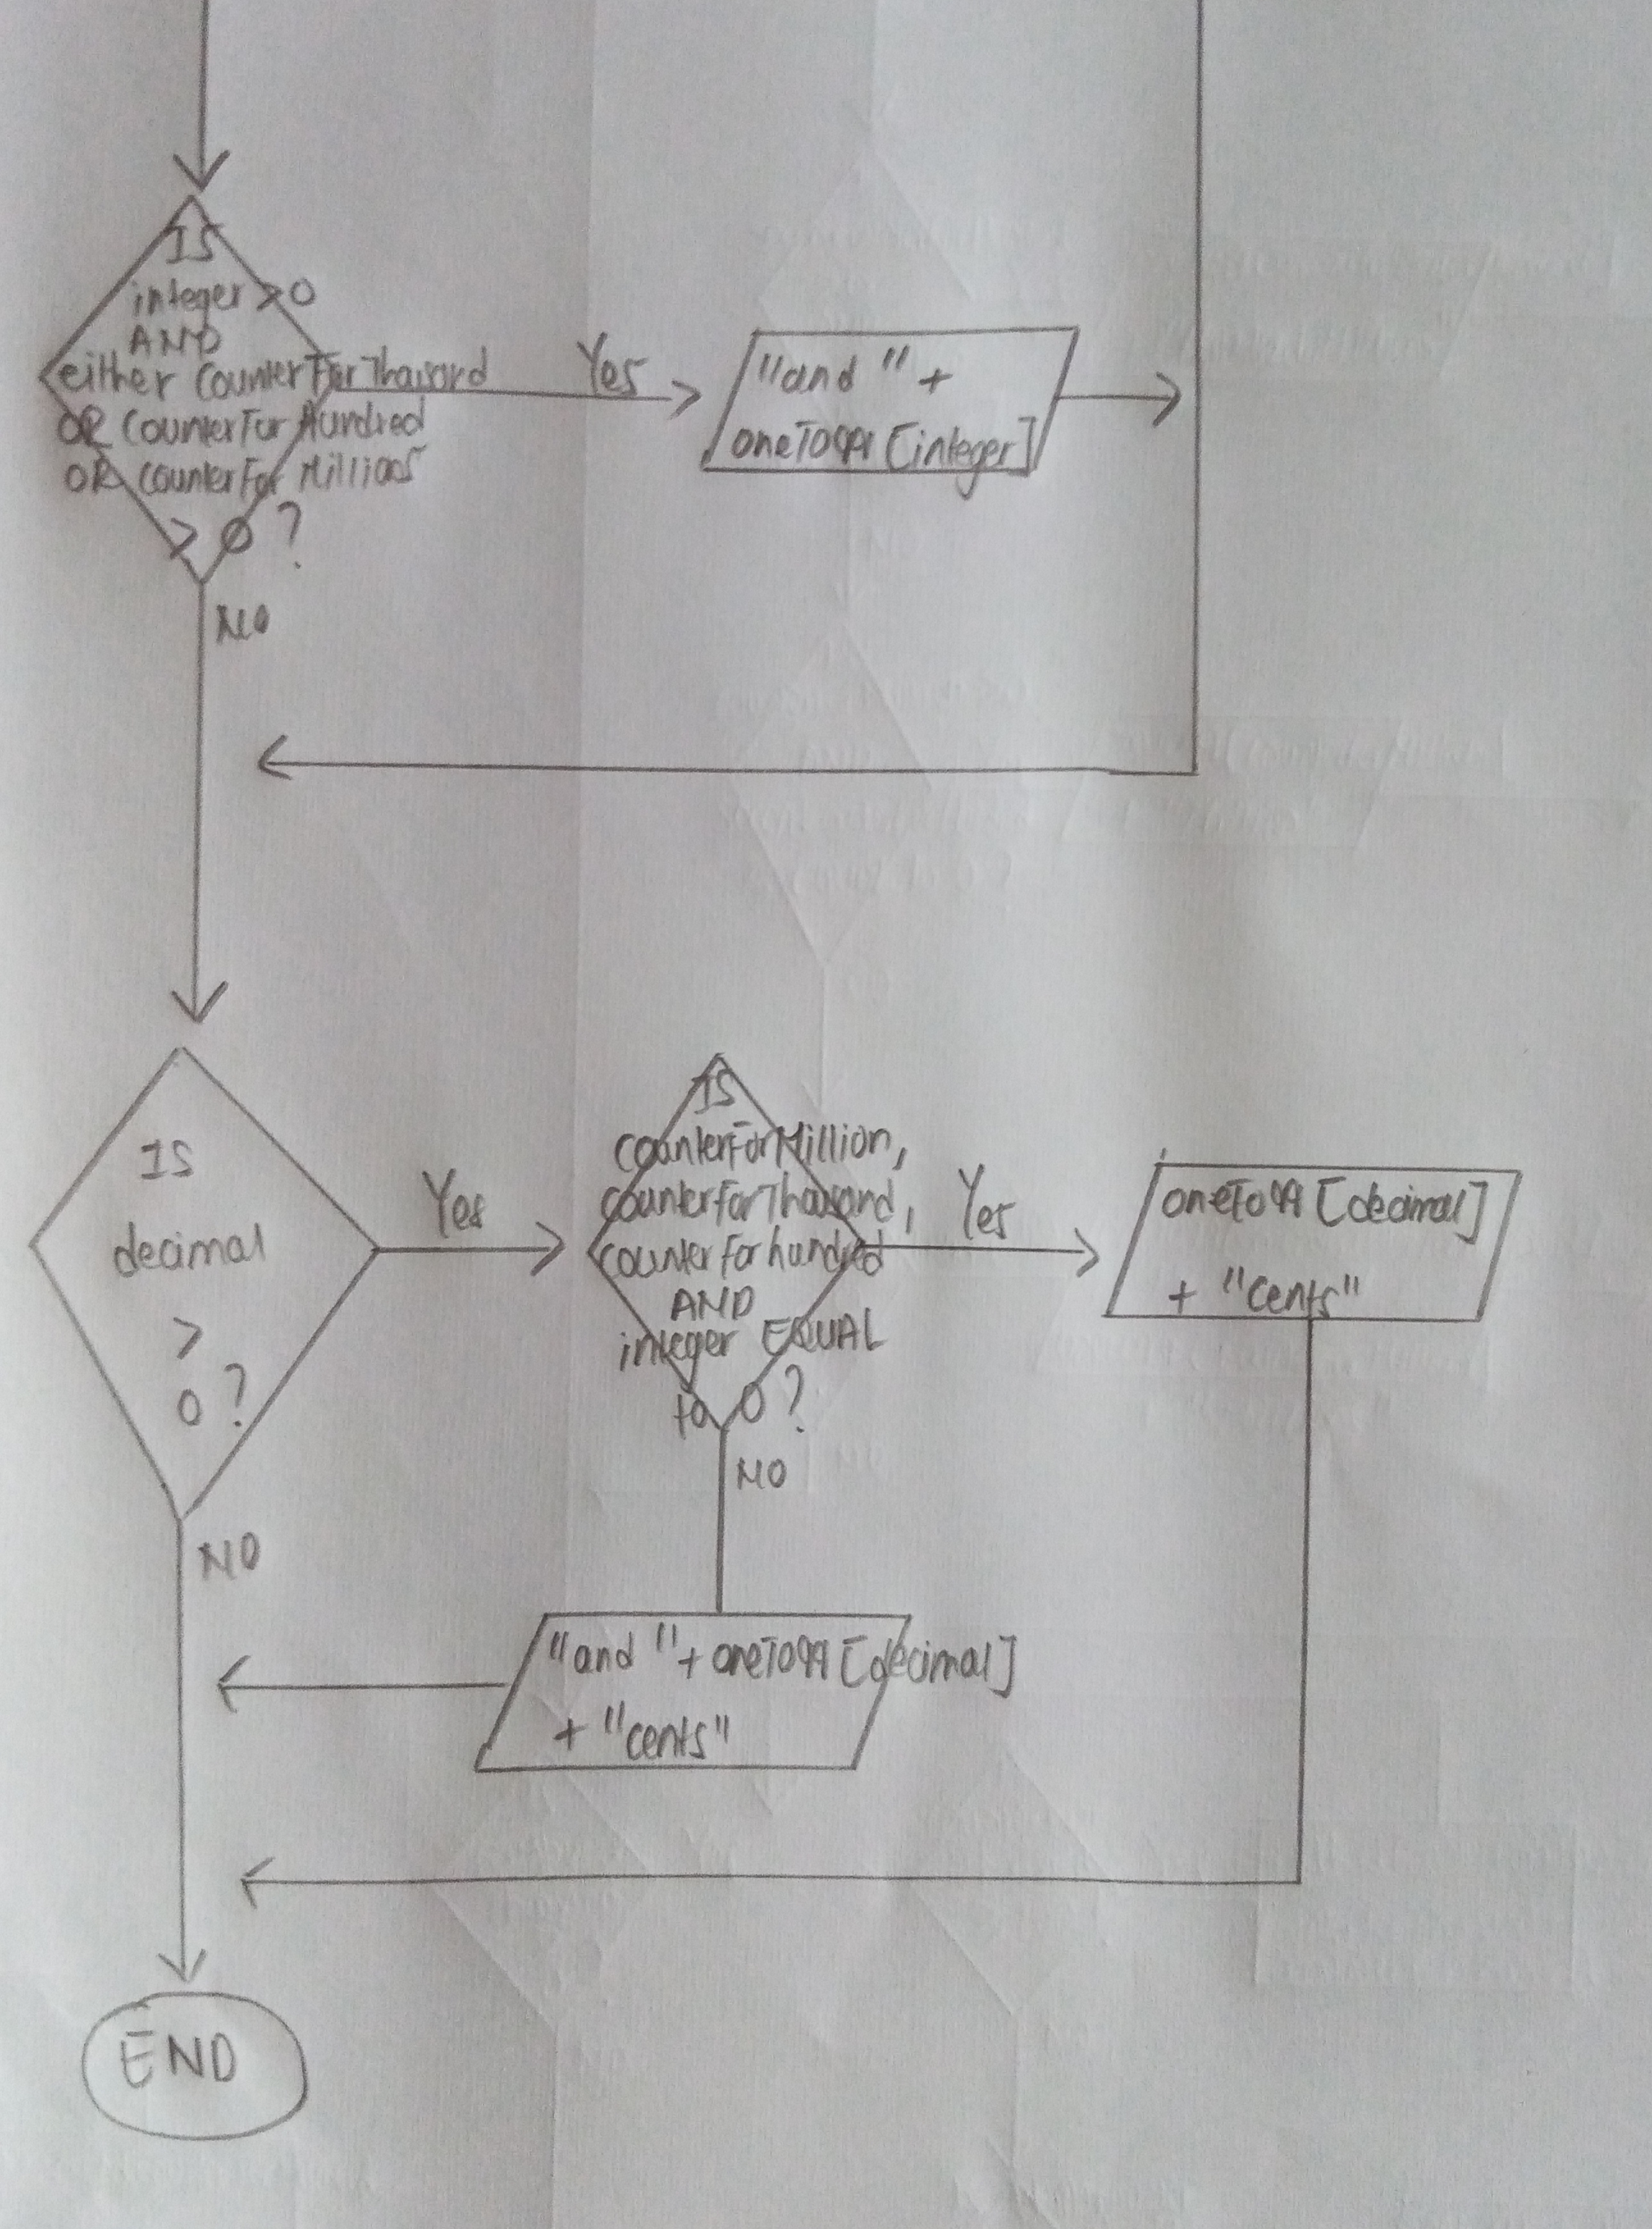 IS
integer >0
AND
either CounterForThousand
OR CounterForHundred
OR CounterForMillions
> 0 ?
Yes
"and " +
oneTo99 [integer]
NO
IS
decimal
>
0 ?
Yes
IS
counterForMillion,
counterForThousand,
counterForhundred
AND
integer EQUAL
to 0 ?
Yes
oneTo99 [decimal]
+ "cents"
NO
NO
"and "+ oneTo99 [decimal]
+ "cents"
END